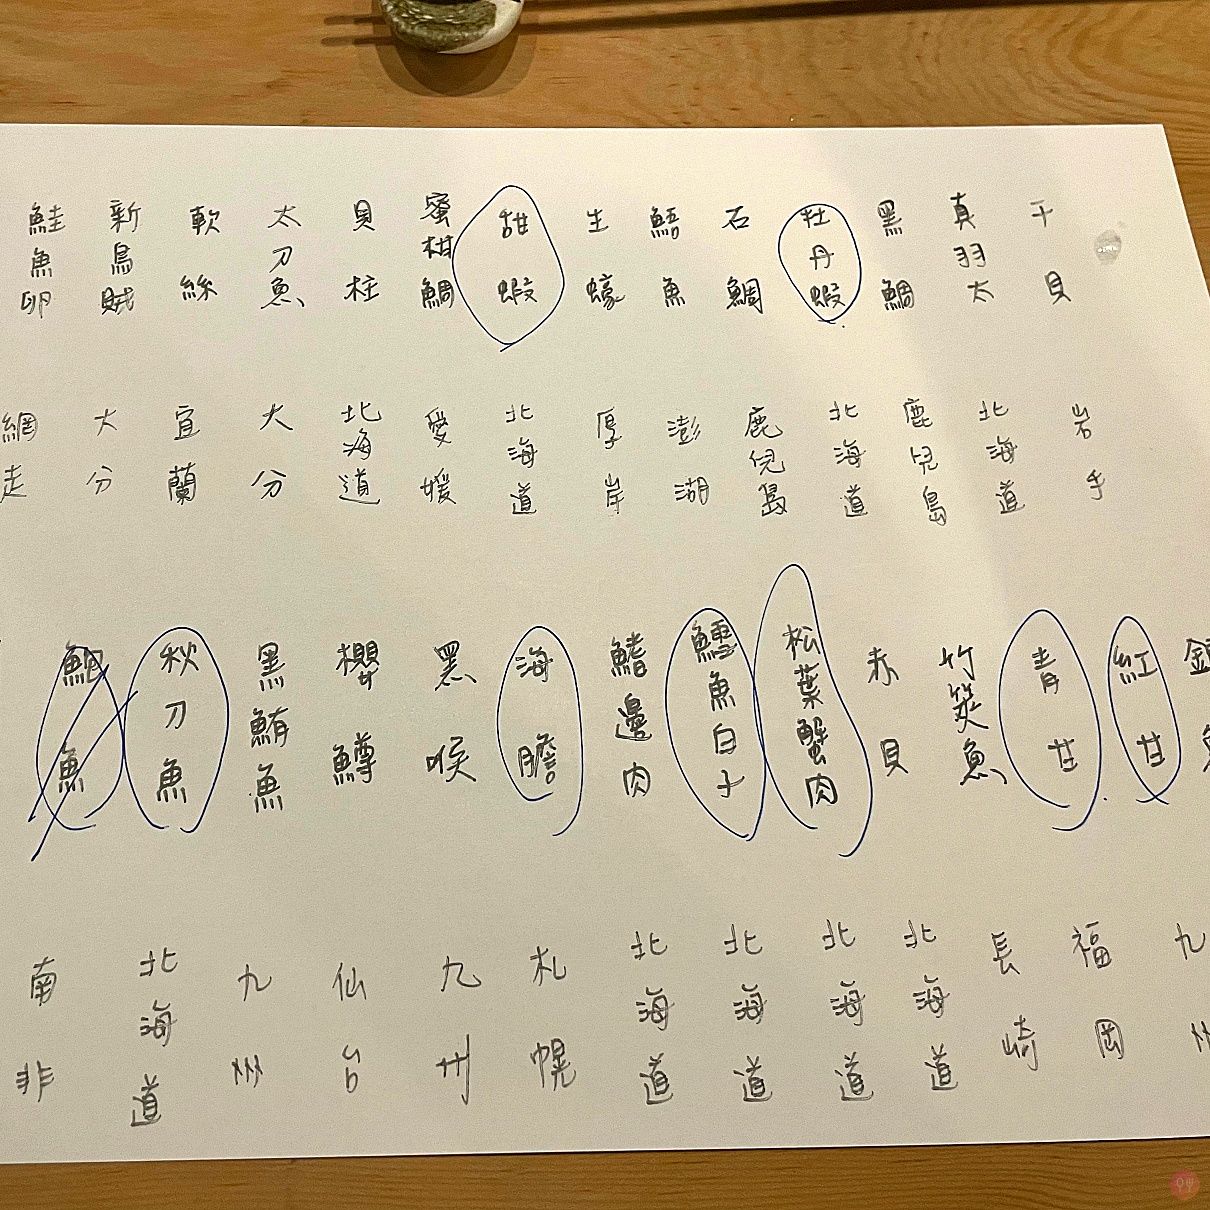 干貝
真羽太
黑鯛
牡丹蝦
石鯛
魚
生蠔
甜蝦
蜜柑鯛
貝柱
太刀魚
軟絲
新鳥賊
鮭魚卵
岩手
北海道
鹿兒島
北海道
鹿兒島
澎湖
厚岸
北海道
愛媛
北海道
大分
宜蘭
大分
網走
紅甘
青甘
竹筴魚
赤貝
松葉蟹肉
鱈魚白子
鰭邊肉
海膽
黑喉
櫻鱒
黑鮪魚
秋刀魚
魚
九州
福岡
長崎
北海道
北海道
北海道
北海道
札幌
九州
仙台
九州
北海道
南非